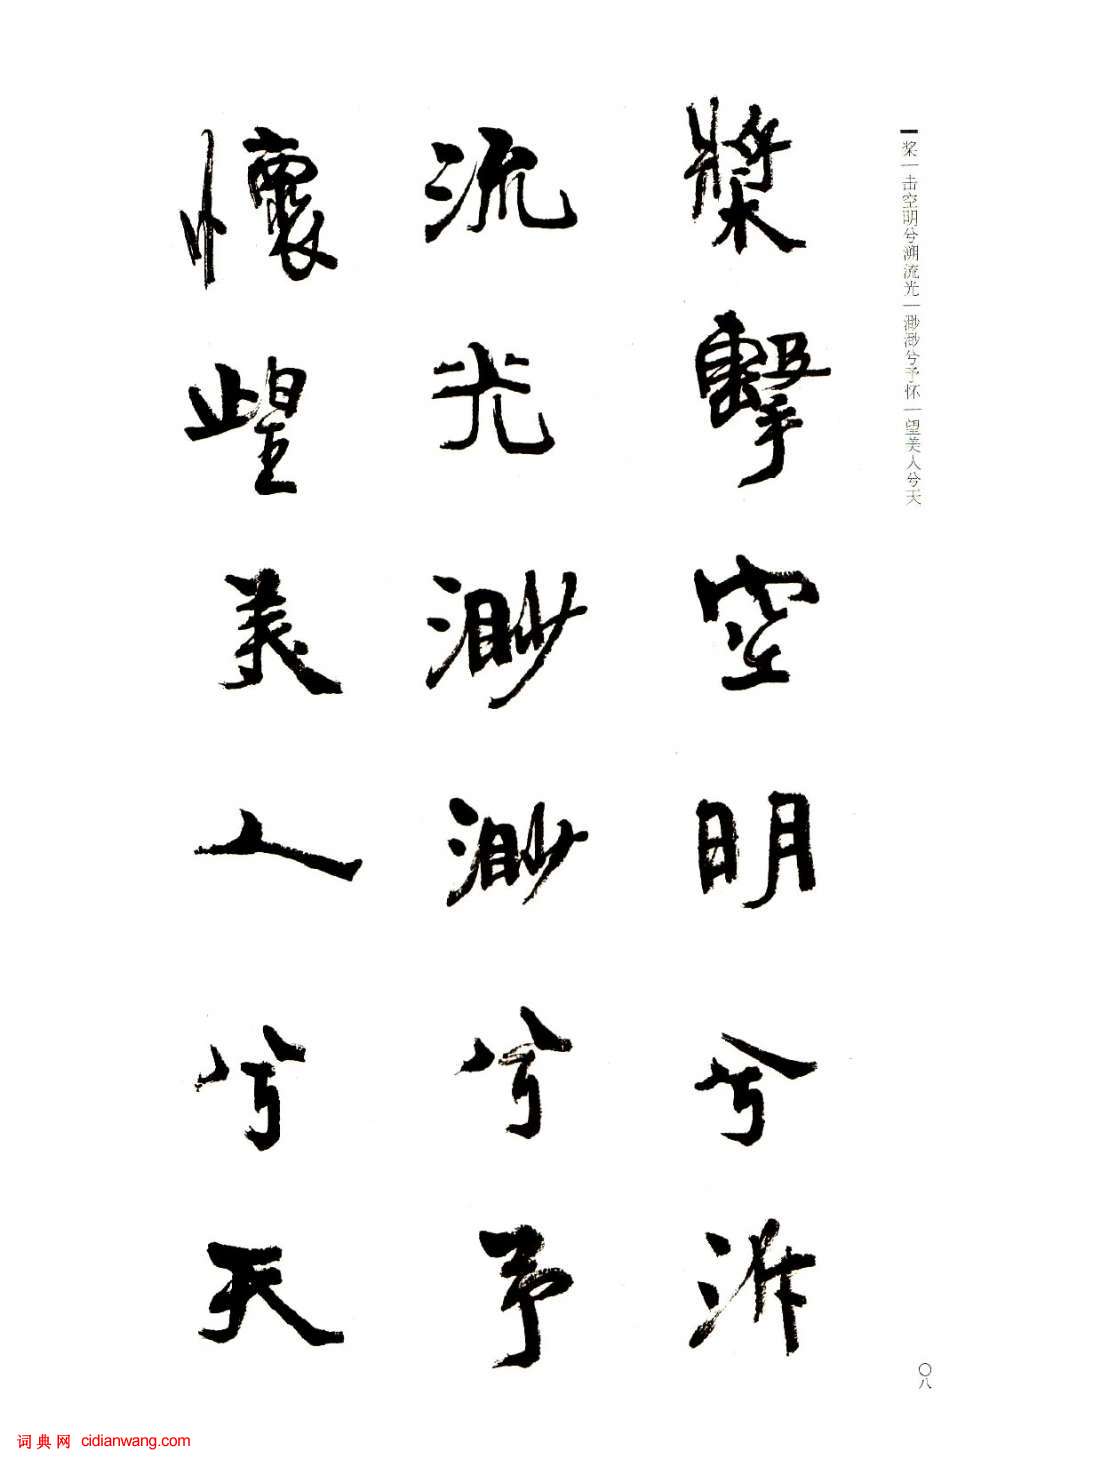 桨一击空明兮溯流光一渺渺兮予怀一望美人兮天
槳擊空明兮泝
流光渺渺兮予
懷望美人兮天
〇八
词典网 cidianwang.com